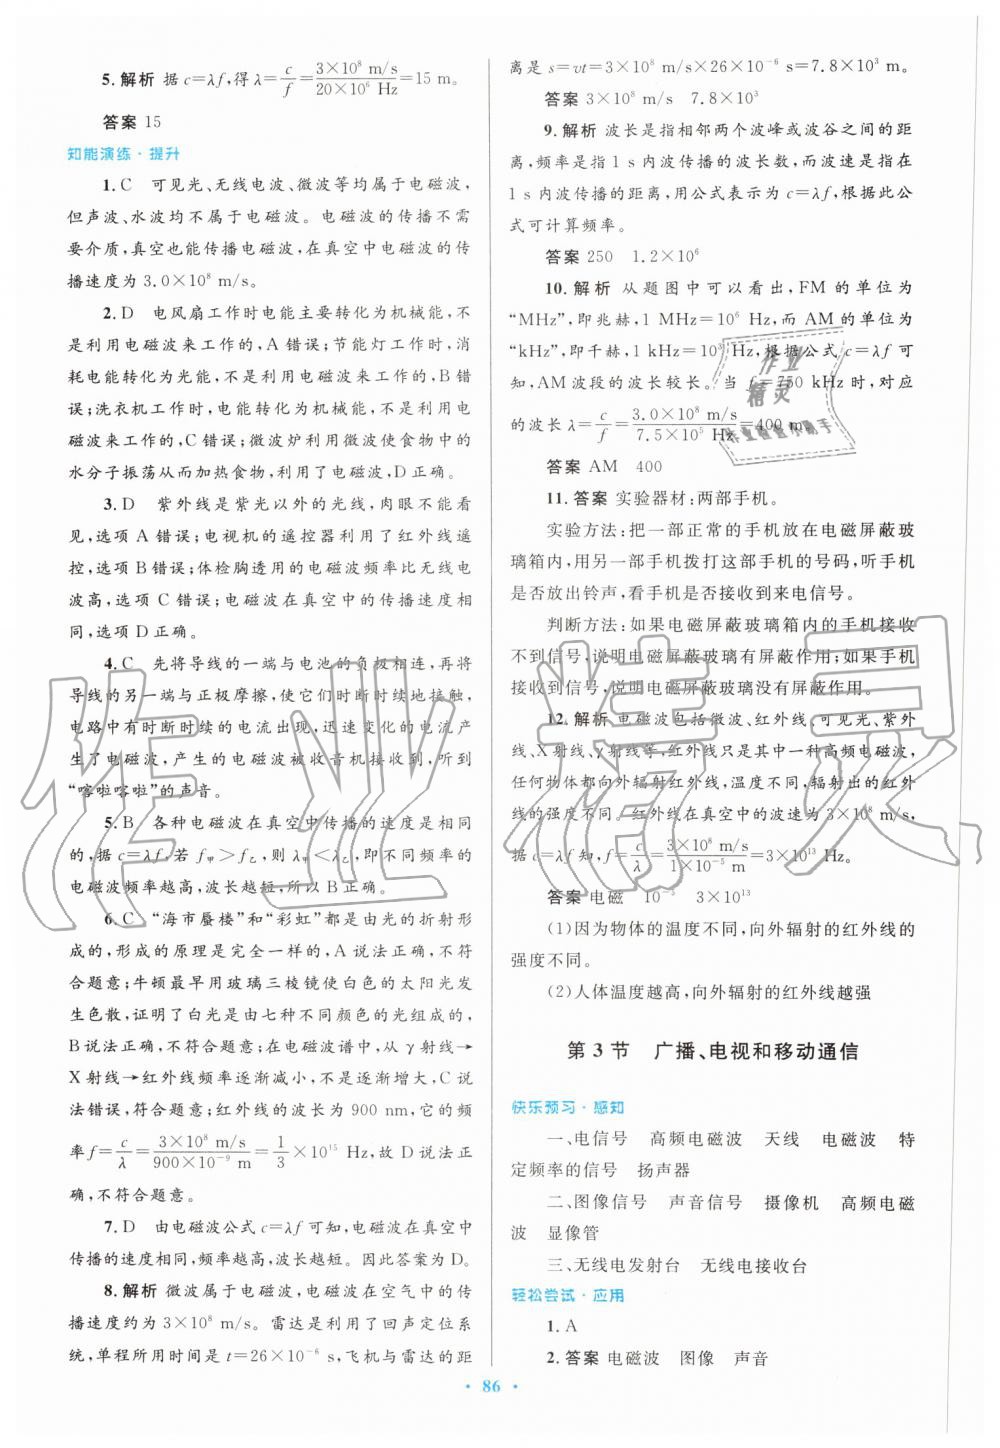 5. 解析 据 c=λf,得 λ=c/f=3×10⁸ m/s/20×10⁶ Hz=15 m。
答案 15
知能演练·提升
1. C 可见光、无线电波、微波等均属于电磁波,
但声波、水波均不属于电磁波。电磁波的传播不需
要介质,真空也能传播电磁波,在真空中电磁波的传
播速度为 3.0×10⁸ m/s。
2. D 电风扇工作时电能主要转化为机械能,不
是利用电磁波来工作的,A 错误;节能灯工作时,消
耗电能转化为光能,不是利用电磁波工作的,B 错
误;洗衣机工作时,电能转化为机械能,不是利用电
磁波来工作的,C 错误;微波炉利用微波使食物中的
水分子振荡从而加热食物,利用了电磁波,D 正确。
3. D 紫外线是紫光以外的光线,肉眼不能看
见,选项 A 错误;电视机的遥控器利用了红外线遥
控,选项 B 错误;体检胸透用的电磁波频率比无线电
波高,选项 C 错误;电磁波在真空中的传播速度相
同,选项 D 正确。
4. C 先将导线的一端与电池的负极相连,再将
导线的另一端与正极摩擦,使它们时断时续地接触,
电路中有时断时续的电流出现,迅速变化的电流产
生了电磁波,产生的电磁波被收音机接收到,听到
“喀啦喀啦”的声音。
5. B 各种电磁波在真空中传播的速度是相同
的,据 c=λf,若 f甲>f乙,则 λ甲<λ乙,即不同频率的
电磁波频率越高,波长越短,所以 B 正确。
6. C “海市蜃楼”和“彩虹”都是由光的折射形
成的,形成的原理是完全一样的,A 说法正确,不符
合题意;牛顿最早用玻璃三棱镜使白色的太阳光发
生色散,证明了白光是由七种不同颜色的光组成的,
B 说法正确,不符合题意;在电磁波谱中,从 γ 射线→
X 射线→红外线频率逐渐减小,不是逐渐增大,C 说
法错误,符合题意;红外线的波长为 900 nm,它的频
率 f=c/λ=3×10⁸ m/s/900×10⁻⁹ m=1/3×10¹⁵ Hz,故 D 说法正确,
不符合题意。
7. D 由电磁波公式 c=λf 可知,电磁波在真空中
传播的速度相同,频率越高,波长越短。因此答案为 D。
8. 解析 微波属于电磁波,电磁波在空气中的传
播速度约为 3×10⁸ m/s。雷达是利用了回声定位系
统,单程所用时间是 t=26×10⁻⁶ s,飞机与雷达的距
离是 s=vt=3×10⁸ m/s×26×10⁻⁶ s=7.8×10³ m。
答案 3×10⁸ m/s 7.8×10³
9. 解析 波长是指相邻两个波峰或波谷之间的距
离,频率是指 1 s 内波传播的波长数,而波速是指在
1 s 内波传播的距离,用公式表示为 c=λf,根据此公
式可计算频率。
答案 250 1.2×10⁶
10. 解析 从题图中可以看出,FM 的单位为
“MHz”,即兆赫,1 MHz=10⁶ Hz,而 AM 的单位为
“kHz”,即千赫,1 kHz=10³ Hz,根据公式 c=λf 可
知,AM 波段的波长较长。当 f=750 kHz 时,对应
的波长 λ=c/f=3.0×10⁸ m/s/7.5×10⁵ Hz=400 m。
答案 AM 400
11. 答案 实验器材:两部手机。
实验方法:把一部正常的手机放在电磁屏蔽玻
璃箱内,用另一部手机拨打这部手机的号码,听手机
是否放出铃声,看手机是否接收到来电信号。
判断方法:如果电磁屏蔽玻璃箱内的手机接收
不到信号,说明电磁屏蔽玻璃有屏蔽作用;如果手机
接收到信号,说明电磁屏蔽玻璃没有屏蔽作用。
12. 解析 电磁波包括微波、红外线、可见光、紫外
线、X 射线、γ 射线等,红外线只是其中一种高频电磁波,
任何物体都向外辐射红外线,温度不同,辐射出的红外
线的强度不同。红外线在真空中的波速为 3×10⁸ m/s,
据 c=λf 知,f=c/λ=3×10⁸ m/s/1×10⁻⁵ m=3×10¹³ Hz。
答案 电磁 10⁻⁵ 3×10¹³
(1)因为物体的温度不同,向外辐射的红外线的
强度不同。
(2)人体温度越高,向外辐射的红外线越强
第 3 节 广播、电视和移动通信
快乐预习·感知
一、电信号 高频电磁波 天线 电磁波 特
定频率的信号 扬声器
二、图像信号 声音信号 摄像机 高频电磁
波 显像管
三、无线电发射台 无线电接收台
轻松尝试·应用
1. A
2. 答案 电磁波 图像 声音
· 86 ·
作业精灵
作业
精灵
作业检查小助手